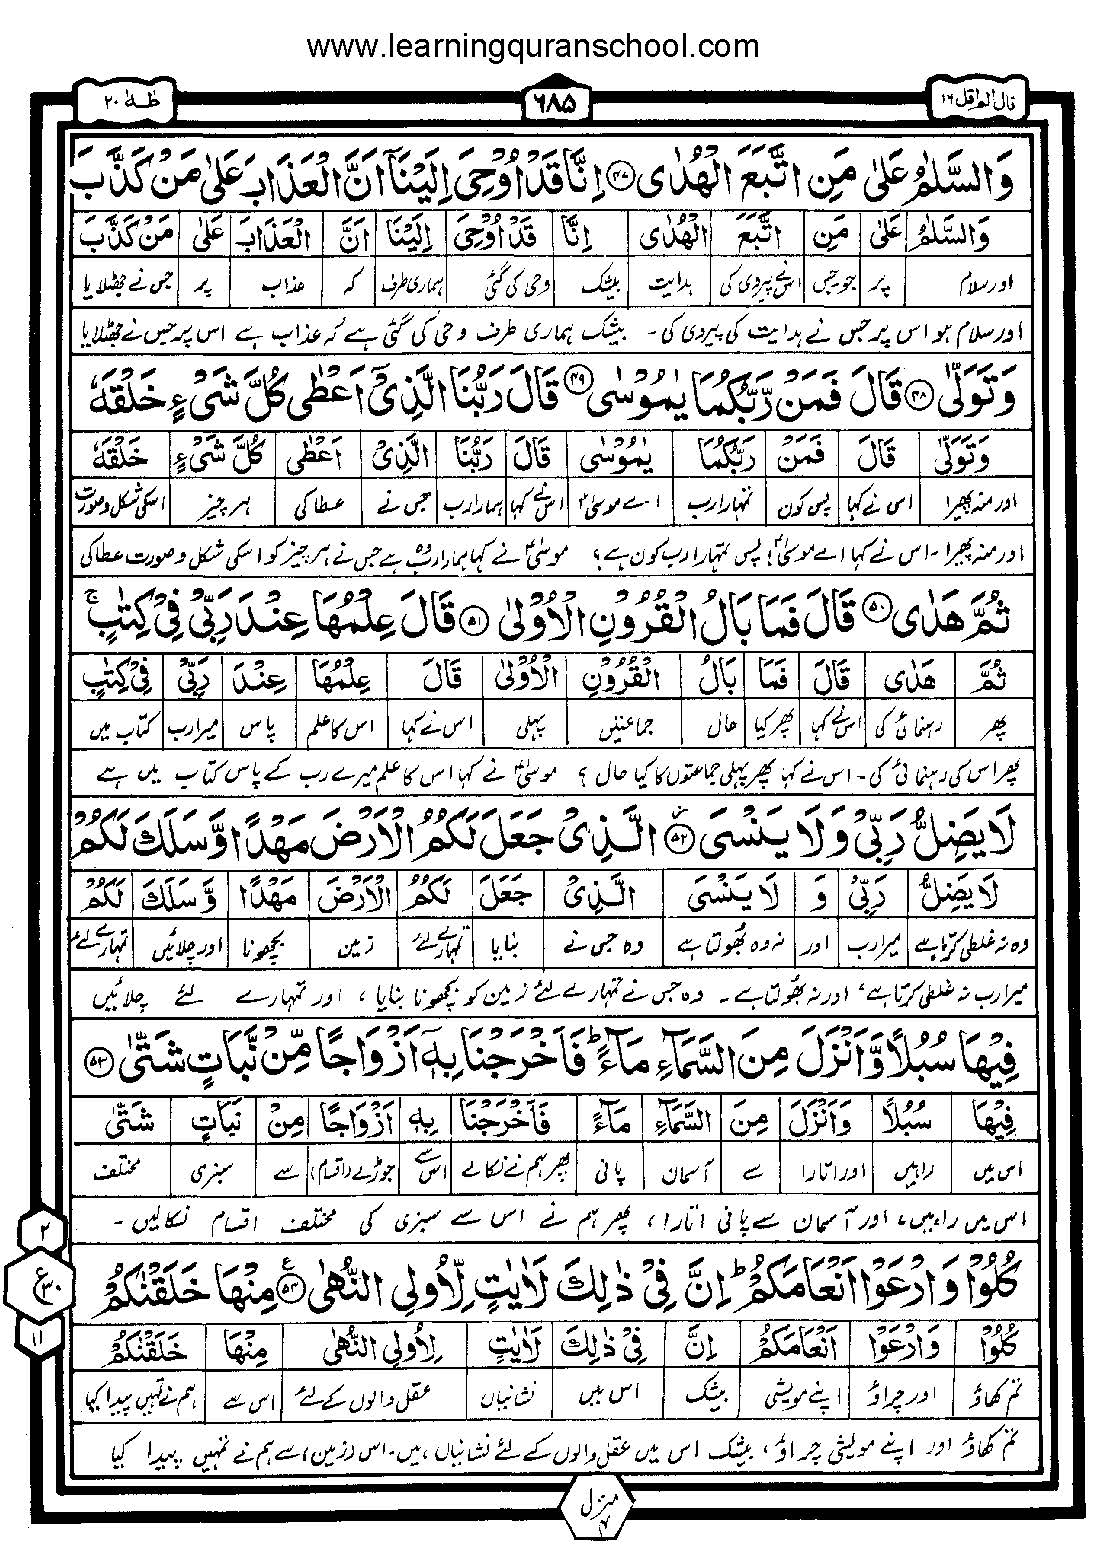 www.learningquranschool.com
طٰهٰ ۲۰
۶۸۵
قال الم اقل ۱۶
وَالسَّلٰمُ عَلٰى مَنِ اتَّبَعَ الْهُدٰى ﴿۴۷﴾ اِنَّا قَدْ اُوْحِىَ اِلَيْنَآ اَنَّ الْعَذَابَ عَلٰى مَنْ كَذَّبَ
وَالسَّلٰمُ عَلٰى مَنِ اتَّبَعَ الْهُدٰى اِنَّا قَدْ اُوْحِىَ اِلَيْنَا اَنَّ الْعَذَابَ عَلٰى مَنْ كَذَّبَ
اور سلام پر جو جس اسنے پیروی کی ہدایت بیشک وحی کی گئی ہماری طرف کہ عذاب پر جس نے جھٹلایا
اور سلام ہو اس پر جس نے ہدایت کی پیروی کی۔ بیشک ہماری طرف وحی کی گئی ہے کہ عذاب ہے اس پر جس نے جھٹلایا
وَتَوَلّٰى ﴿۴۸﴾ قَالَ فَمَنْ رَّبُّكُمَا يٰمُوْسٰى ﴿۴۹﴾ قَالَ رَبُّنَا الَّذِىْٓ اَعْطٰى كُلَّ شَىْءٍ خَلْقَهٗ
وَتَوَلّٰى قَالَ فَمَنْ رَبُّكُمَا يٰمُوْسٰى قَالَ رَبُّنَا الَّذِىْ اَعْطٰى كُلَّ شَىْءٍ خَلْقَهٗ
اور منہ پھیرا اس نے کہا پس کون تمہارا رب اے موسیٰؑ اسنے کہا ہمارا رب جس نے عطا کی ہر چیز اسکی شکل و صورت
اور منہ پھیرا۔ اس نے کہا اے موسیٰؑ! پس تمہارا رب کون ہے؟ موسیٰؑ نے کہا ہمارا رب وہ ہے جس نے ہر چیز کو اسکی شکل و صورت عطا کی
ثُمَّ هَدٰى ﴿۵۰﴾ قَالَ فَمَا بَالُ الْقُرُوْنِ الْاُوْلٰى ﴿۵۱﴾ قَالَ عِلْمُهَا عِنْدَ رَبِّىْ فِىْ كِتٰبٍ ۚ
ثُمَّ هَدٰى قَالَ فَمَا بَالُ الْقُرُوْنِ الْاُوْلٰى قَالَ عِلْمُهَا عِنْدَ رَبِّىْ فِىْ كِتٰبٍ
پھر رہنمائی کی اسنے کہا پھر کیا حال جماعتیں پہلی اس نے کہا اس کا علم پاس میرا رب کتاب میں
پھر اس کی رہنمائی کی۔ اس نے کہا پھر پہلی جماعتوں کا کیا حال؟ موسیٰؑ نے کہا اس کا علم میرے رب کے پاس کتاب میں ہے
لَا يَضِلُّ رَبِّىْ وَلَا يَنْسَى ﴿۵۲﴾ الَّذِىْ جَعَلَ لَكُمُ الْاَرْضَ مَهْدًا وَّسَلَكَ لَكُمْ
لَا يَضِلُّ رَبِّىْ وَ لَا يَنْسَى الَّذِىْ جَعَلَ لَكُمُ الْاَرْضَ مَهْدًا وَّسَلَكَ لَكُمْ
وہ نہ غلطی کرتا ہے میرا رب اور نہ وہ بھولتا ہے وہ جس نے بنایا تمہارے لئے زمین بچھونا اور چلائیں تمہارے لئے
میرا رب نہ غلطی کرتا ہے، اور نہ بھولتا ہے۔ وہ جس نے تمہارے لئے زمین کو بچھونا بنایا، اور تمہارے لئے چلائیں
فِيْهَا سُبُلًا وَّاَنْزَلَ مِنَ السَّمَآءِ مَآءً ؕ فَاَخْرَجْنَا بِهٖٓ اَزْوَاجًا مِّنْ نَّبَاتٍ شَتّٰى ﴿۵۳﴾
فِيْهَا سُبُلًا وَّاَنْزَلَ مِنَ السَّمَآءِ مَآءً فَاَخْرَجْنَا بِهٖ اَزْوَاجًا مِنْ نَبَاتٍ شَتّٰى
اس میں راہیں اور اتارا سے آسمان پانی پھر ہم نے نکالے اس سے جوڑے (اقسام) سے سبزی مختلف
اس میں راہیں، اور آسمان سے پانی اتارا، پھر ہم نے اس سے سبزی کی مختلف اقسام نکالیں۔
كُلُوْا وَارْعَوْا اَنْعَامَكُمْ ؕ اِنَّ فِىْ ذٰلِكَ لَاٰيٰتٍ لِّاُولِى النُّهٰى ﴿۵۴﴾ مِنْهَا خَلَقْنٰكُمْ
كُلُوْا وَارْعَوْا اَنْعَامَكُمْ اِنَّ فِىْ ذٰلِكَ لَاٰيٰتٍ لِاُولِى النُّهٰى مِنْهَا خَلَقْنٰكُمْ
تم کھاؤ اور چراؤ اپنے مویشی بیشک اس میں نشانیاں عقل والوں کے لئے اس سے ہم نے تمہیں پیدا کیا
تم کھاؤ اور اپنے مویشی چراؤ، بیشک اس میں عقل والوں کے لئے نشانیاں ہیں۔ اس (زمین) سے ہم نے تمہیں پیدا کیا
۲
ع ۳۰
۱۱
منزل ۴